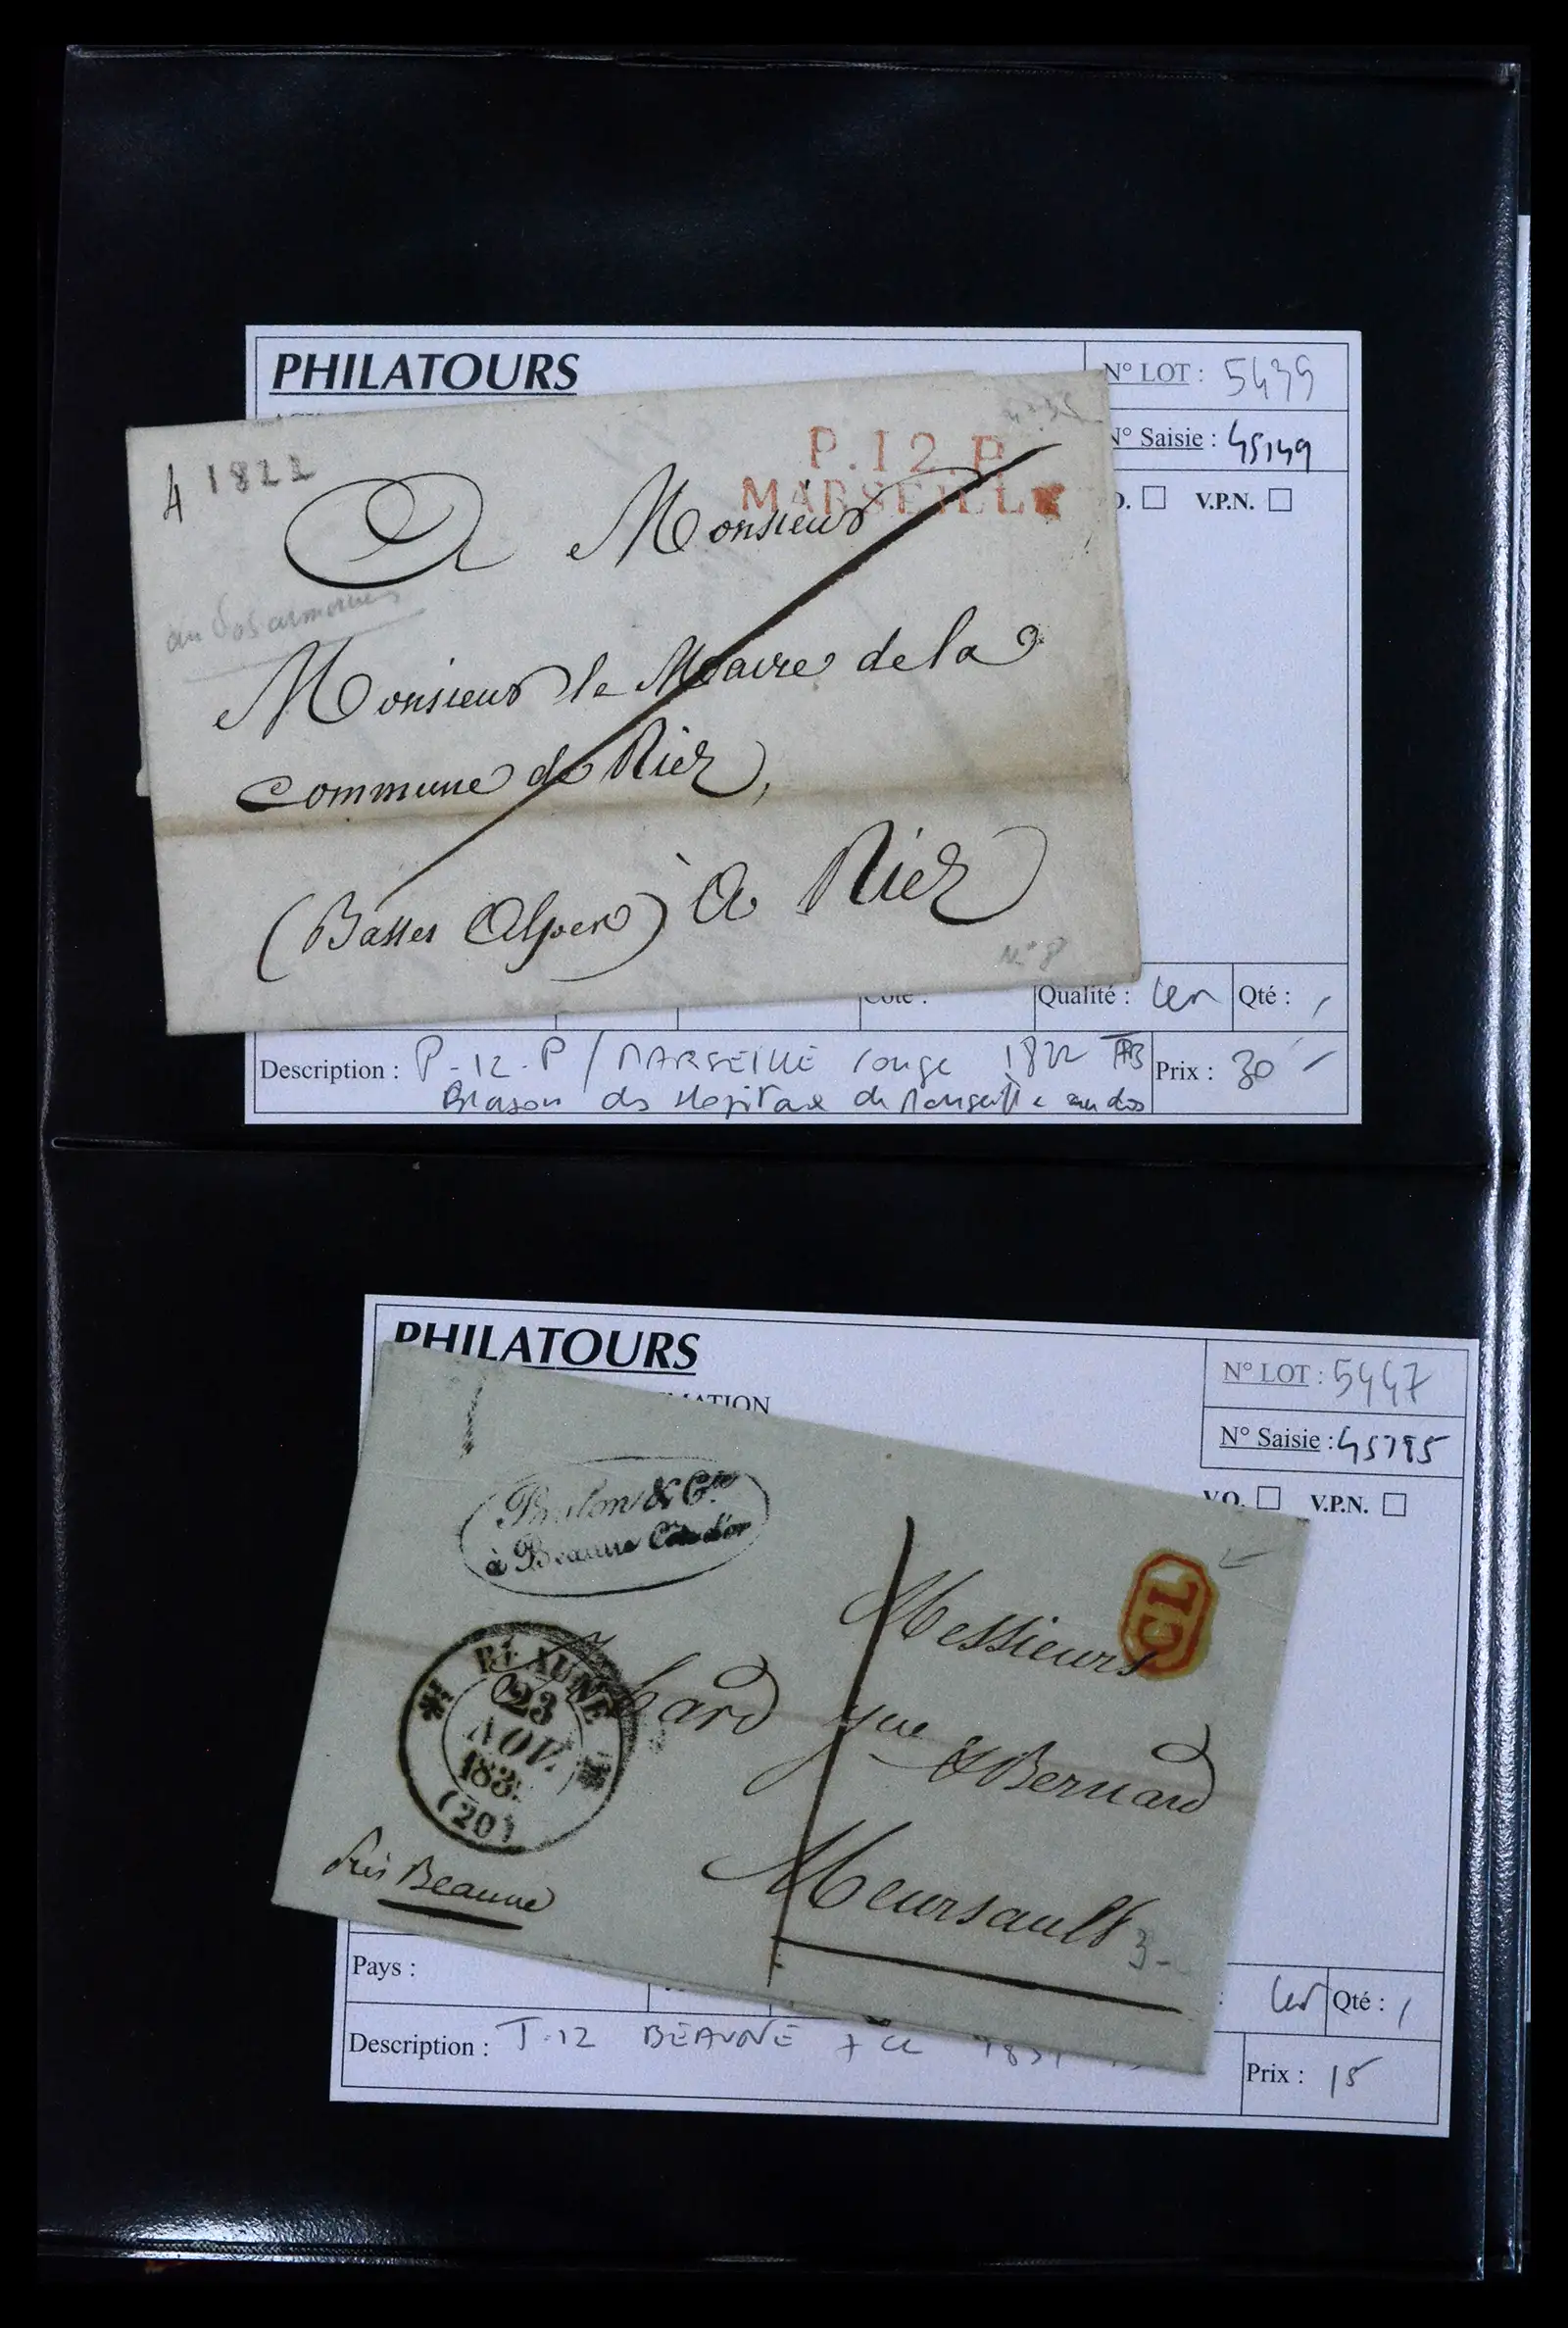 PHILATOURS
N° LOT : 5439
N° Saisie : 45149
O. V.P.N.
4 1822
P.12.P
MARSEILLE
A Monsieur
au dos armoiries
Monsieur le Maire de la
Commune de Riez,
(Basses Alpes) à Riez
N° 8
Cote :
Qualité : Qté : 1
Description : P-12-P / MARSEILLE rouge 1822 TB
Blason des Hopitaux de Marseille au dos
Prix : 30
PHILATOURS
MATION
N° LOT : 5447
N° Saisie : 45795
V.O. V.P.N.
& Cie
à Beaune Côte d'or
CL
Messieurs
BEAUNE
23
NOV.
183
(20)
jne & Bernard
près Beaune
Meursault
3-
Pays :
: Qté : 1
Description : T-12 BEAUNE + CL
Prix : 15